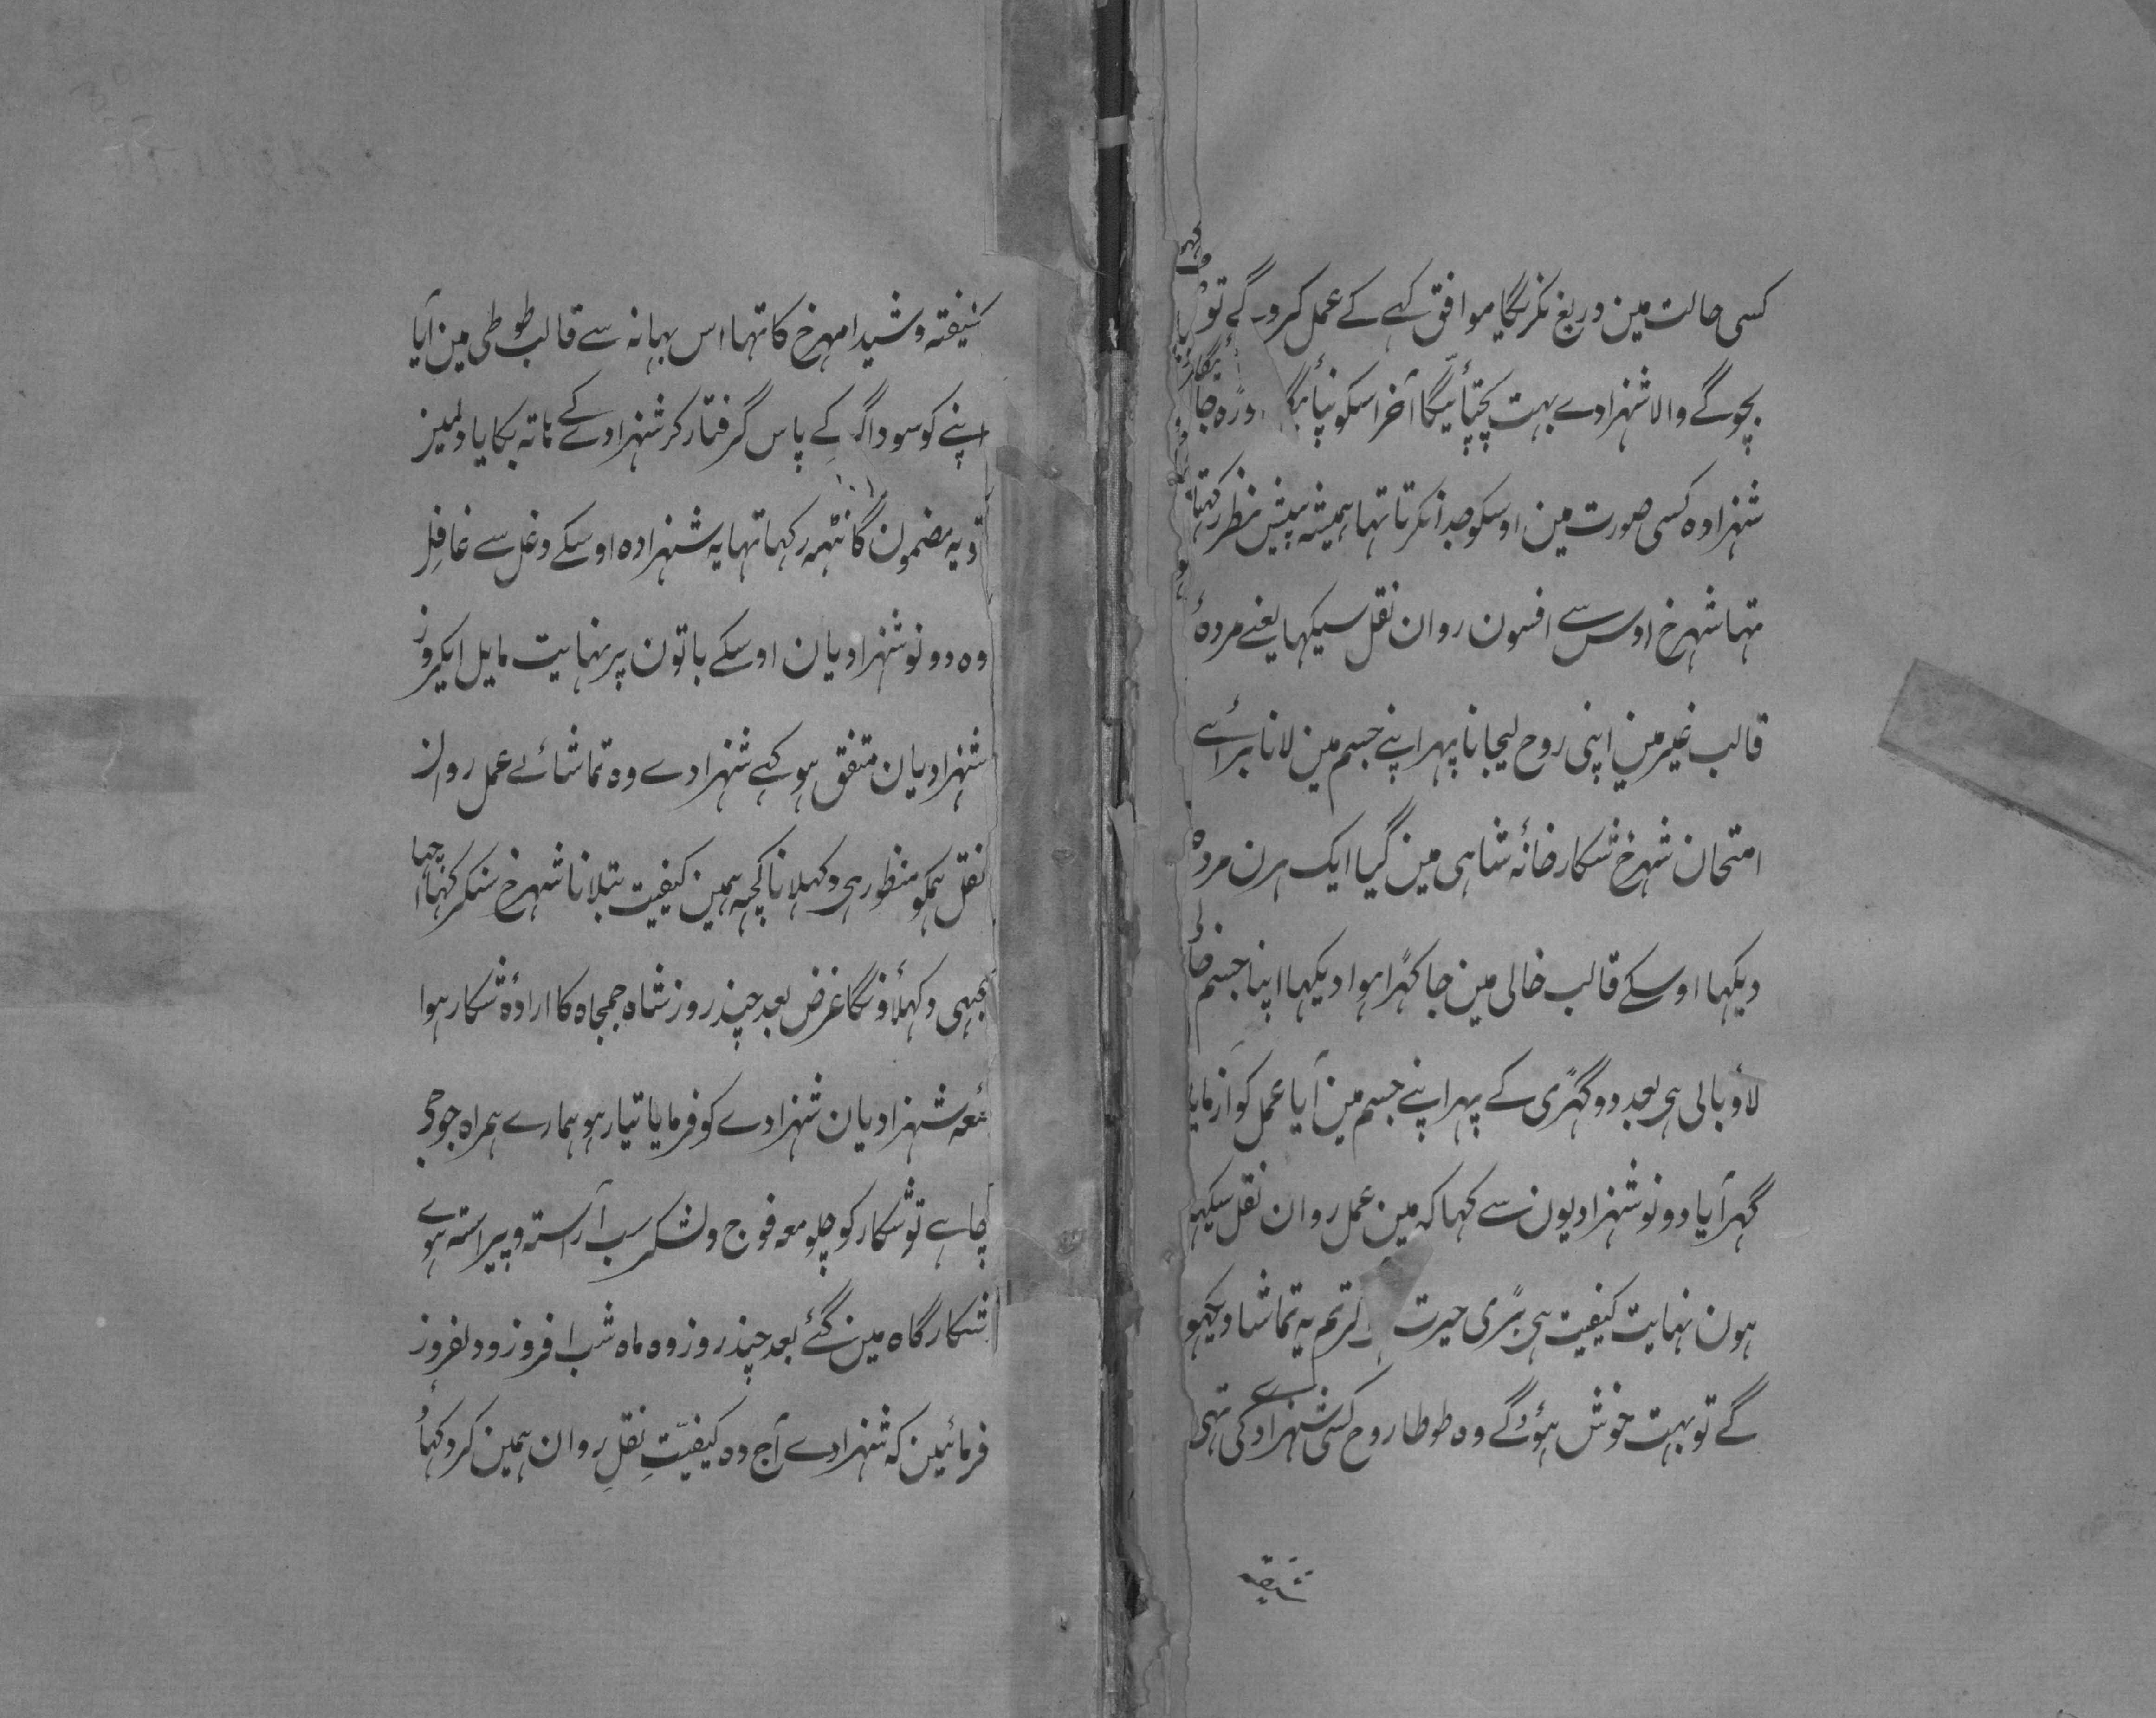 کسی حالت مین دریغ نکریگا موافق کہے کے عمل کروگے تو
بچوگے والا شہزادے بہت پچتائیگا آخر اسکو نپائیگا
شہزادہ کسی صورت مین اوسکو جدا نکرتا تہا ہمیشہ پیش نظر رکہتا
تہا شہرخ اوس سے افسون روان نقل سیکہا یعنے مردہٴ
قالب غیر مین اپنی روح لیجانا پہر اپنے جسم مین لانا برائے
امتحان شہرخ شکار خانہٴ شاہی مین گیا ایک ہرن مردہ
دیکہا اوسکے قالب خالی مین جا کہڑا ہوا دیکہا اپنا جسم خالی
لاؤبالی ہی بعد دو گہڑی کے پہر اپنے جسم مین آیا عمل کو آزمایا
گہر آیا دونو شہزادیون سے کہا کہ مین عمل روان نقل سیکہو
ہون نہایت کیفیت ہی بڑی حیرت تم یہ تماشا دیکہو
گے تو بہت خوش ہوؤگے وہ طوطا روح کسی شہزادے کی تہی
شیفتہ
شیفتہ و شیدا مہرخ کا تہا اس بہانہ سے قالب طوطی مین آیا
اپنے کو سوداگر کے پاس گرفتار کر شہزادے کے ہاتہ بکایا دلمین
تو یہ مضمون گانٹہہ رکہا تہا یہ شہزادہ اوسکے دغل سے غافل
وہ دونو شہزادیان اوسکے باتون پر نہایت مایل ایکروز
شہزادیان متفق ہو کہے شہزادے وہ تماشائے عمل روان
نقل ہمکو منظور ہی دکہلانا کچہہ ہمین کیفیت بتلانا شہرخ سنکر کہا اچہا
کبہی دکہلاؤنگا غرض بعد چند روز شاہ جمجاہ کا ارادہٴ شکار ہوا
معہ شہزادیان شہزادے کو فرمایا تیار ہو ہمارے ہمراہ جو جی
چاہے تو شکار کو چلو معہ فوج و لشکر سب آراستہ و پیراستہ ہوے
شکار گاہ مین گئے بعد چند روز وہ ماہ شب افروز و دلفروز
فرمائین کہ شہزادے آج وہ کیفیّتِ نقلِ روان ہمین کر دکہاؤ